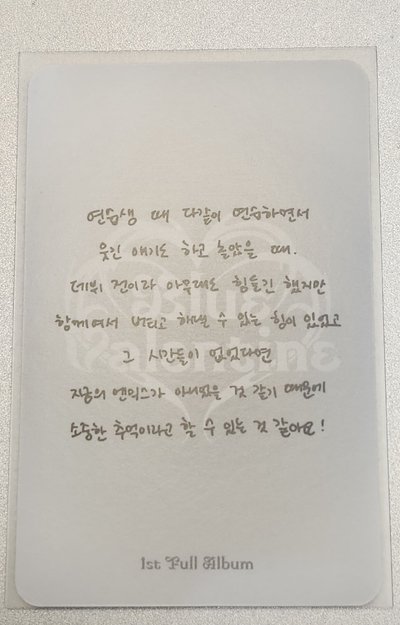 연습생 때 다같이 연습하면서
웃긴 얘기도 하고 놀았을 때.
데뷔 전이라 아무래도 힘들긴 했지만
함께여서 버티고 해낼 수 있는 힘이 있었고
그 시간들이 없었다면
지금의 엔믹스가 아니었을 것 같기 때문에
소중한 추억이라고 할 수 있는 것 같아요!
Blue
Valentine
1st Full Album